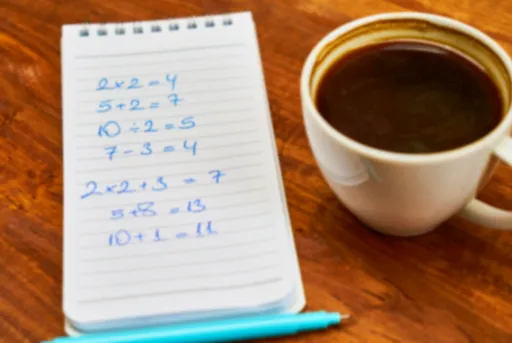 2×2=4
5+2=7
10÷2=5
7-3=4
2×2+3=7
5+8=13
10+1=11